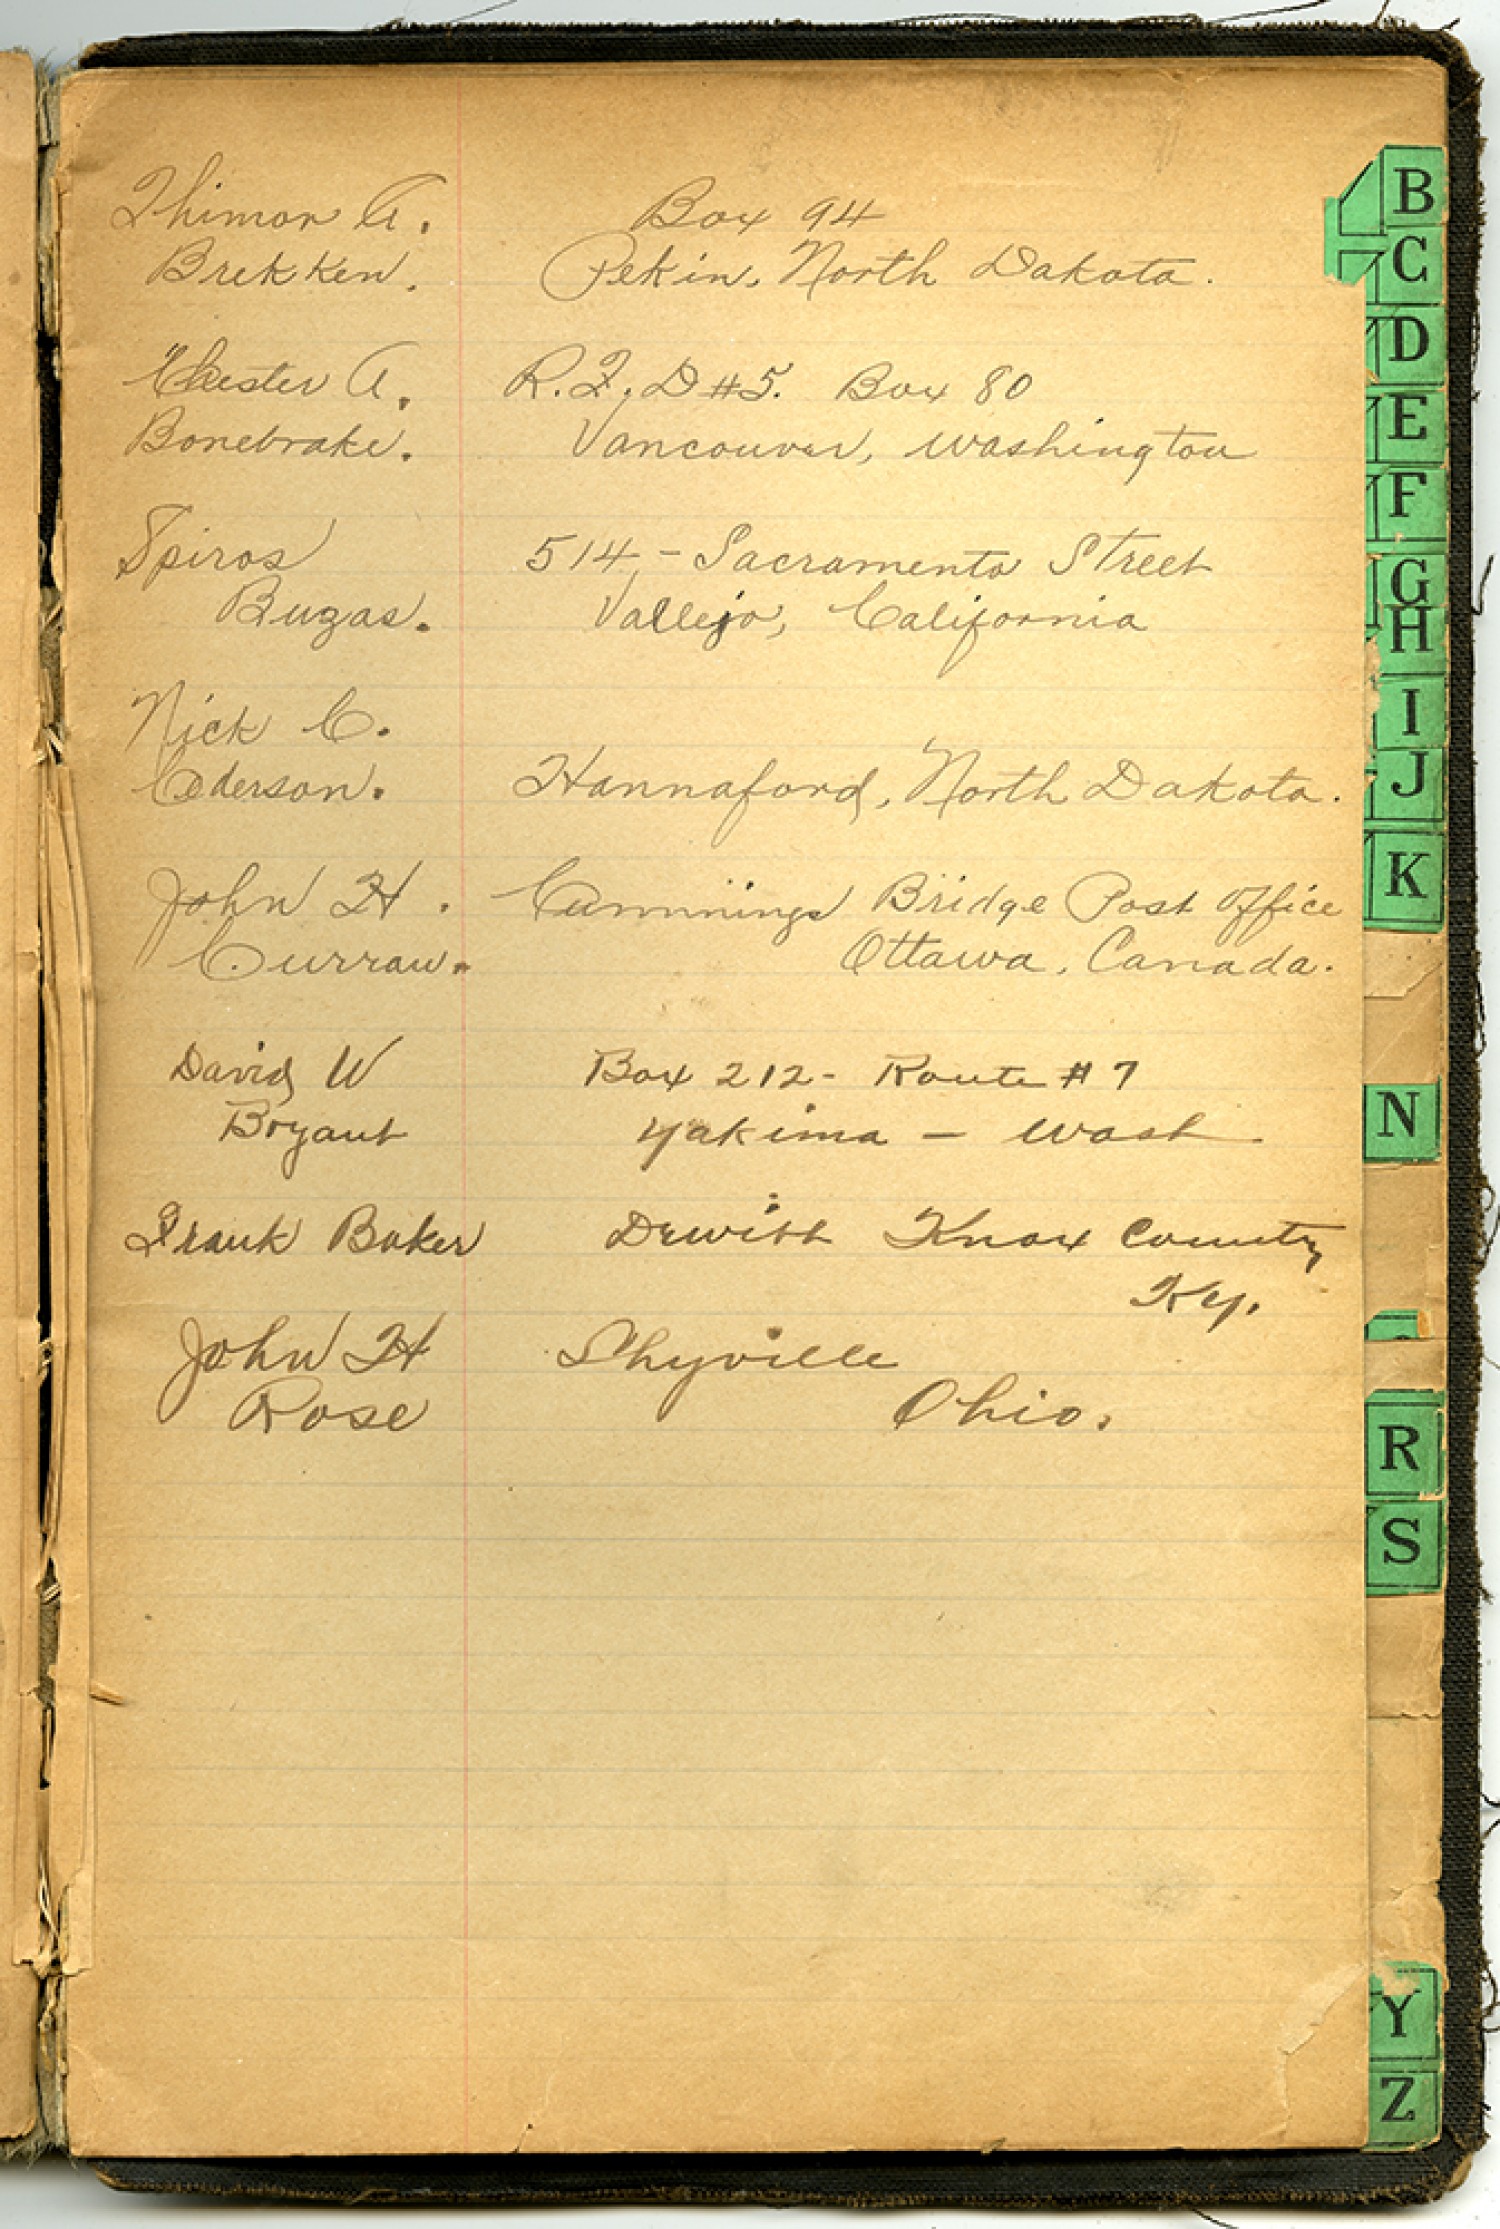 Thimon A. Box 94
Brekken. Pekin, North Dakota.
Chester A. R.F.D #5. Box 80
Bonebrake. Vancouver, Washington
Spiros 514 - Sacramento Street
Bugas. Vallejo, California
Nick C.
Ederson. Hannaford, North Dakota.
John H. Cummings Bridge Post Office
Curran. Ottawa, Canada.
David W Box 212 - Route #7
Bryant Yakima - Wash.
Frank Baker Dewitt Knox County
Ky.
John H Shyville
Rose Ohio.
B
C
D
E
F
G
H
I
J
K
N
R
S
Y
Z